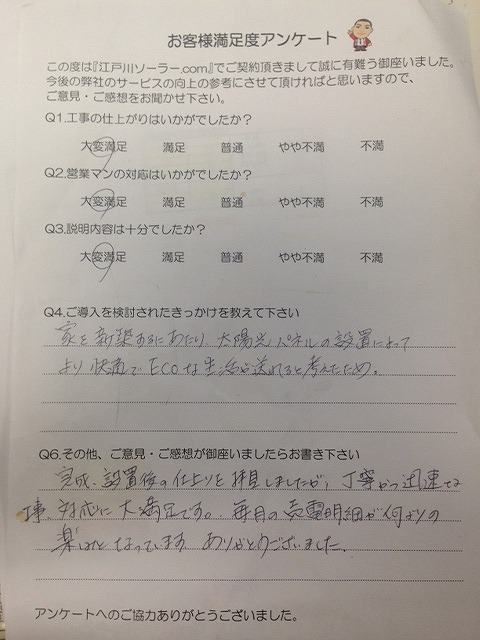 お客様満足度アンケート
この度は『江戸川ソーラー.com』でご契約頂きまして誠に有難う御座いました。
今後の弊社のサービスの向上の参考にさせて頂ければと思いますので、
ご意見・ご感想をお聞かせ下さい。
Q1.工事の仕上がりはいかがでしたか?
大変満足 満足 普通 やや不満 不満
Q2.営業マンの対応はいかがでしたか?
大変満足 満足 普通 やや不満 不満
Q3.説明内容は十分でしたか?
大変満足 満足 普通 やや不満 不満
Q4.ご導入を検討されたきっかけを教えて下さい
家を新築するにあたり、太陽光パネルの設置によって
より快適でECOな生活を送れると考えたため。
Q6.その他、ご意見・ご感想が御座いましたらお書き下さい
完成、設置後の仕上りを拝見しましたが、丁寧かつ迅速な
工事、対応に大満足です。毎月の売電明細が何よりの
楽しみとなっています。ありがとうございました。
アンケートへのご協力ありがとうございました。